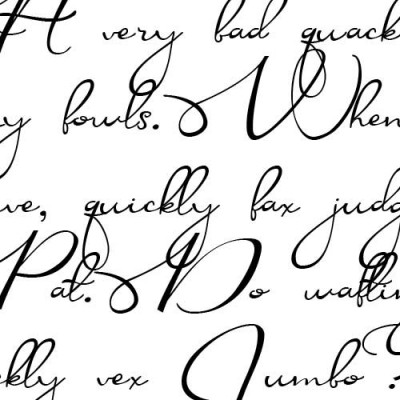 A very bad quack
y fowls. When
ve, quickly fax judg
Pat. Do waftin
ckly vex Jumbo?